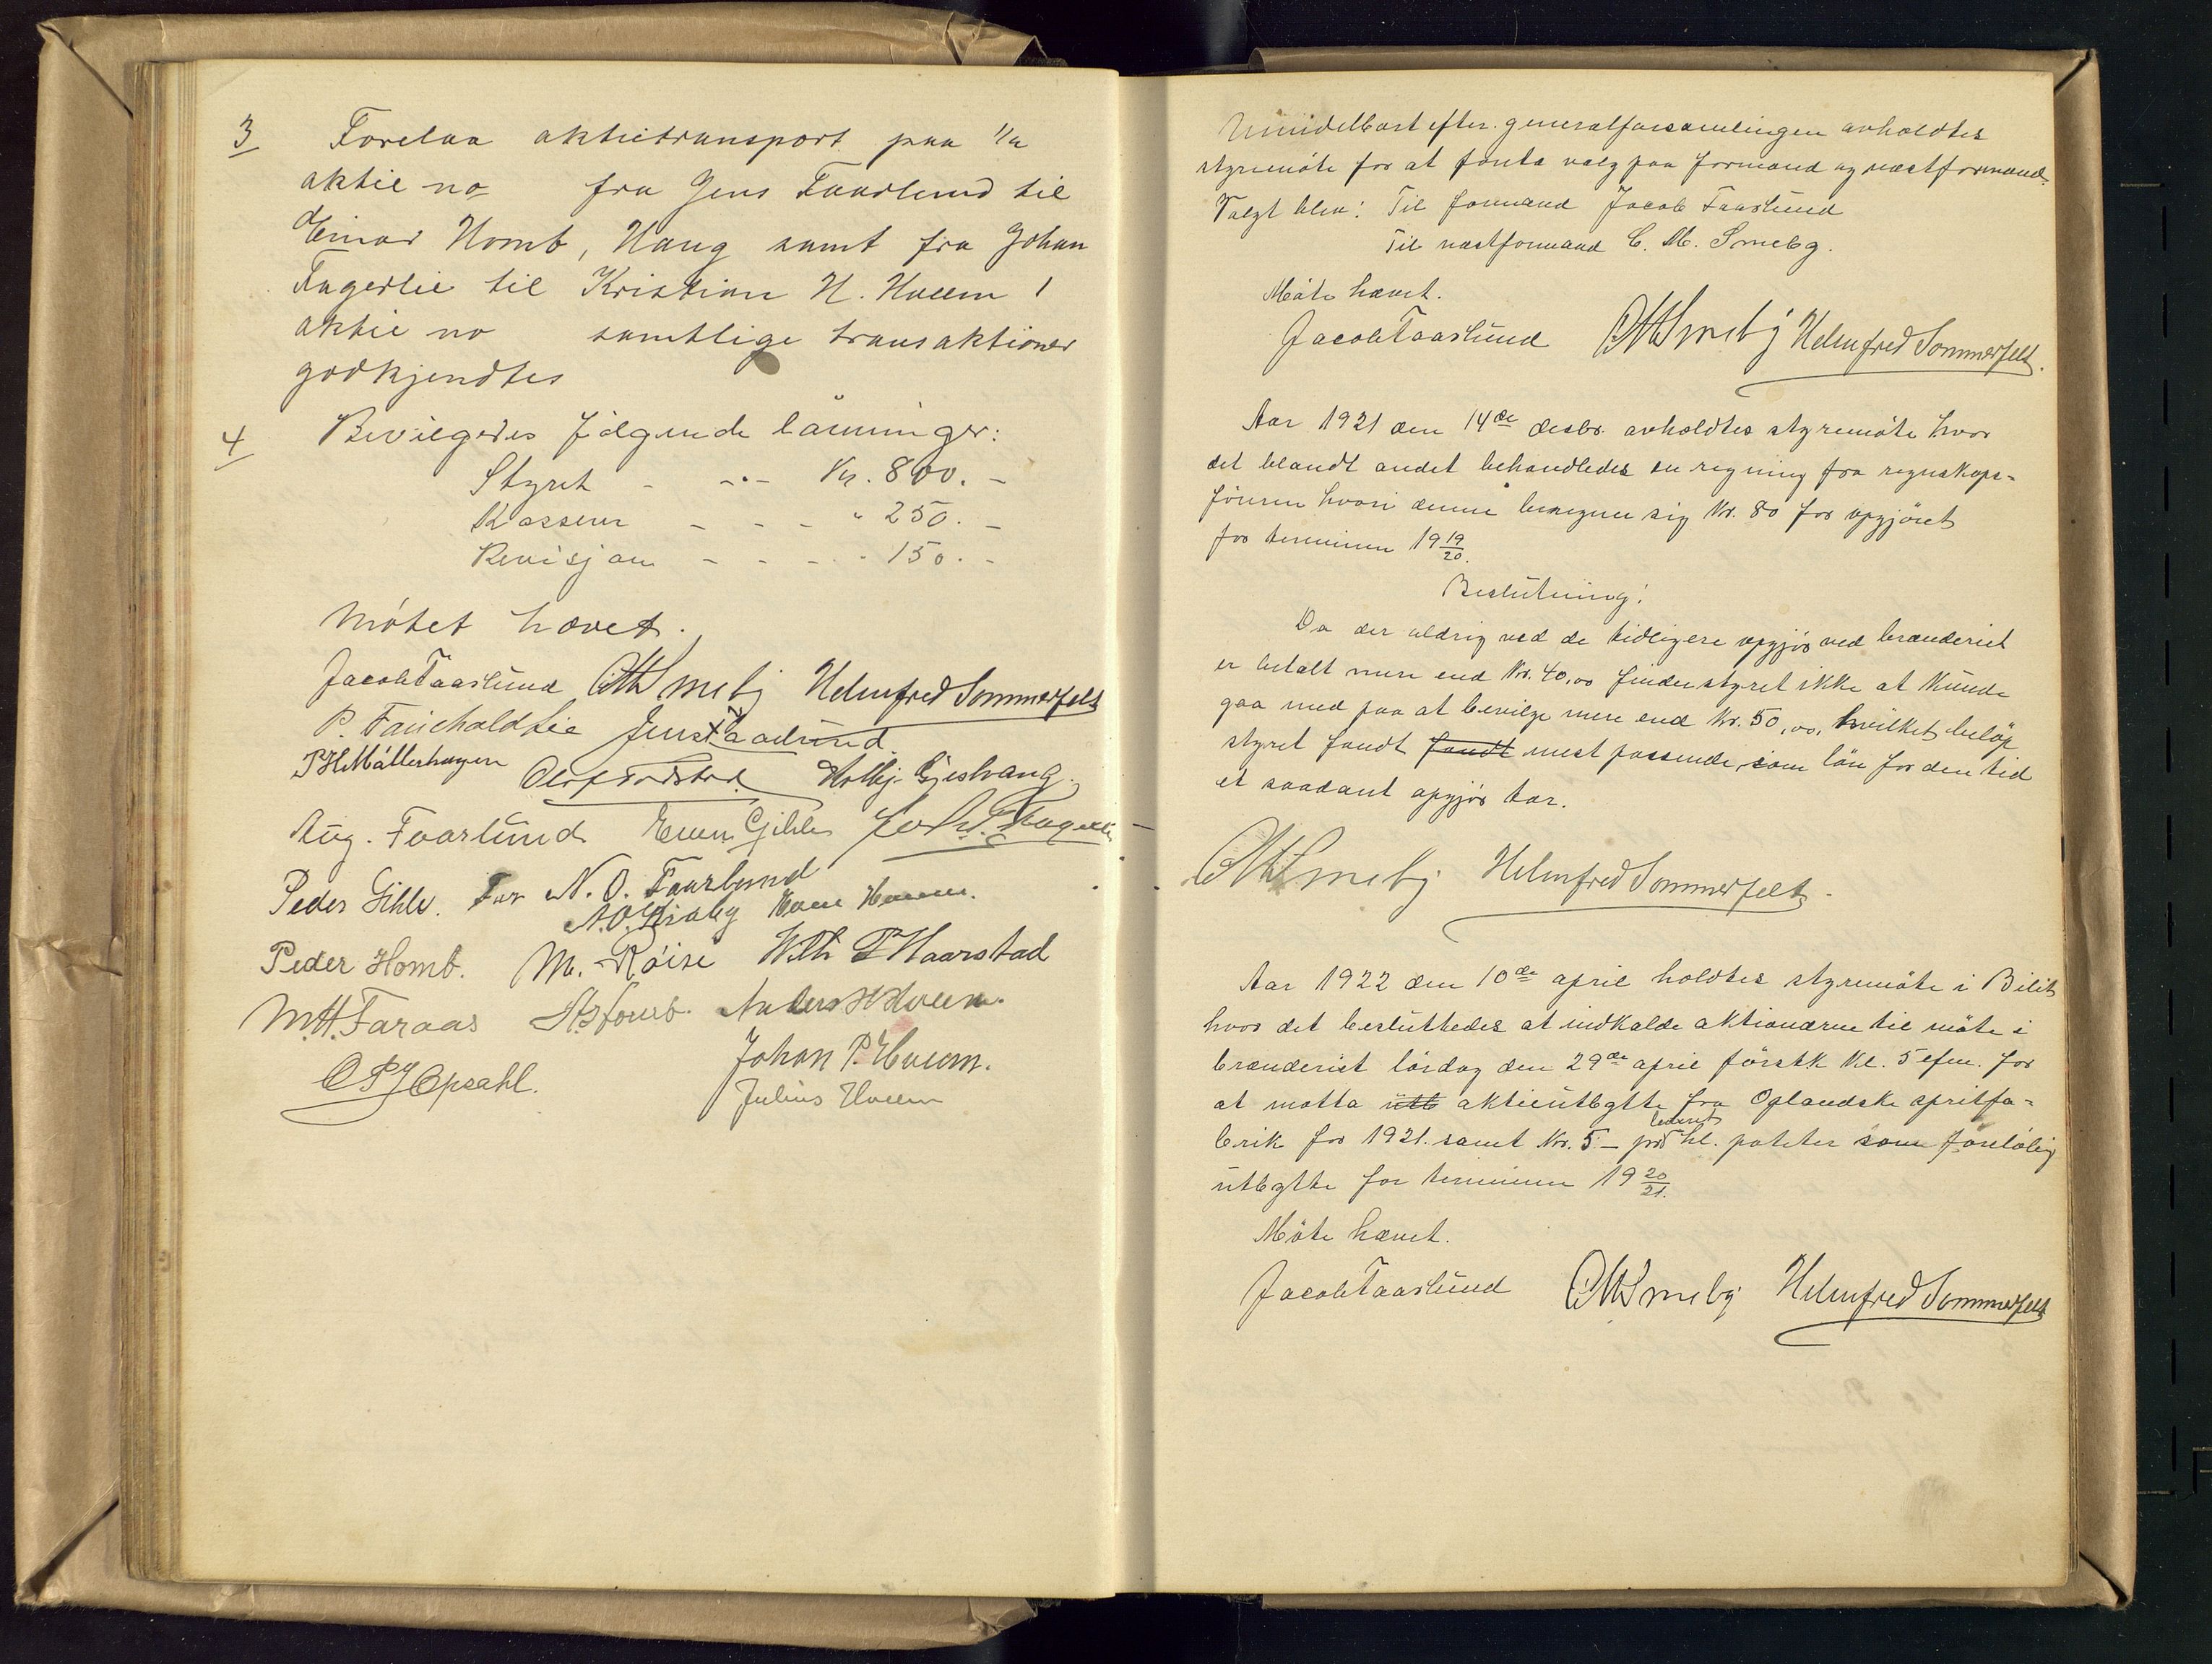 3 Forelaa aktietransport paa 1/2
aktie no fra Jens Faarlund til
Einar Homb, Haug samt fra Johan
Fagerlie til Kristian H. Hveem 1
aktie no samtlige transaktioner
godkjendtes
4 Bevilgedes følgende lønninger:
Styret - - - Kr. 800. -
Kasserer - - - " 250. -
Revisjon - - - - 150. -
Møtet hævet.
Jacob Faarlund CMSmeby Helmfred Sommerfelt
P. Fauchaldlie Jens Faarlund.
P. H. Møllerhagen Olaf Holbj. Gjestvang.
Aug. Faarlund Even Gihle Joh. Fagerli
Peder Gihle. For N. O. Faarlund
N.O. Hveem.
Peder Homb. M. Røise Wilh P Haarstad
M.H. Faraas Anders H Hveem.
Johan P. Hveem.
O P J Opsahl.
Julius Hveem
Umidelbart efter generalforsamlingen avholdtes
styremøte for at foreta valg paa formand og næstformand.
Valgt blev: Til formand Jacob Faarlund
Til næstformand C. M. Smeby.
Møte hævet.
Jacob Faarlund CMSmeby Helmfred Sommerfelt.
Aar 1921 den 14de desbr. avholdtes styremøte hvor
det blandt andet behandledes en regning fra regnskaps-
føreren hvori denne beregner sig Kr. 80 for opgjøret
for terminen 19 19/20.
Beslutning:
Da der aldrig ved de tidligere opgjør ved brænderiet
er betalt mere end Kr. 40,00 finder styret ikke at kunde
gaa med paa at bevilge mere end Kr. 50,00, hvilket beløp
styret fandt fandt mest passende som løn for den tid
et saadant opgjør tar.
CMSmeby Helmfred Sommerfelt.
Aar 1922 den 10de april holdtes styremøte i Bilit
hvor det besluttedes at indkalde aktionærene til møte i
brænderiet lørdag den 29de april førstk kl. 5 efm. for
at motta utb aktieutbytte fra Oplandske spritfa-
brik for 1921. samt Kr. 5 - pr levert hl. poteter som foreløbig
utbytte for terminen 19 20/21.
Møte hævet.
Jacob Faarlund CMSmeby Helmfred Sommerfelt